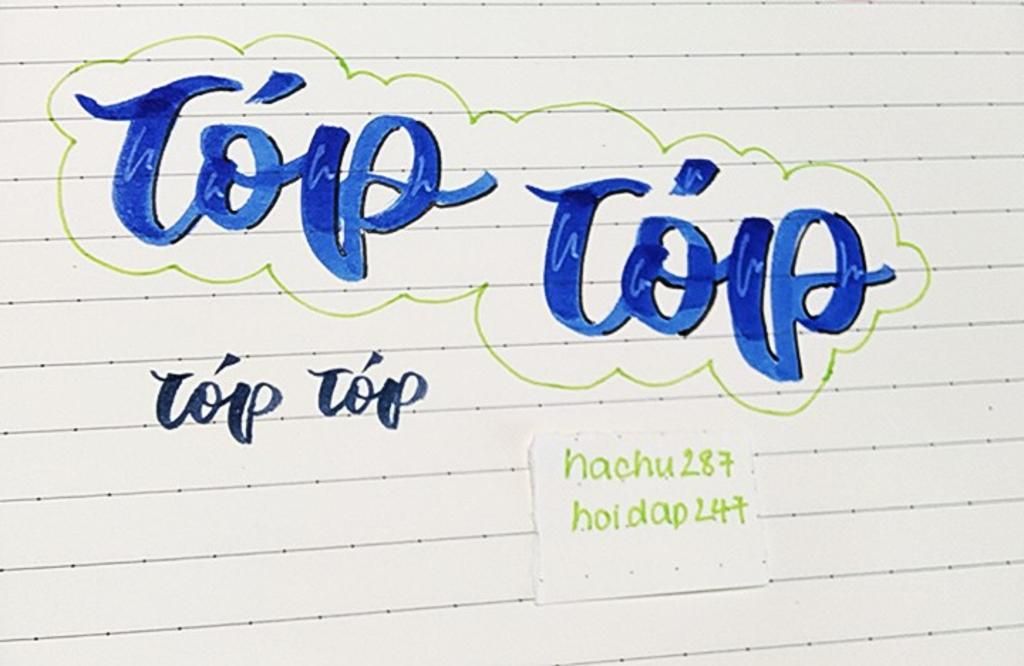 Tóp Tóp
tóp tóp
hachu287
hoidap247